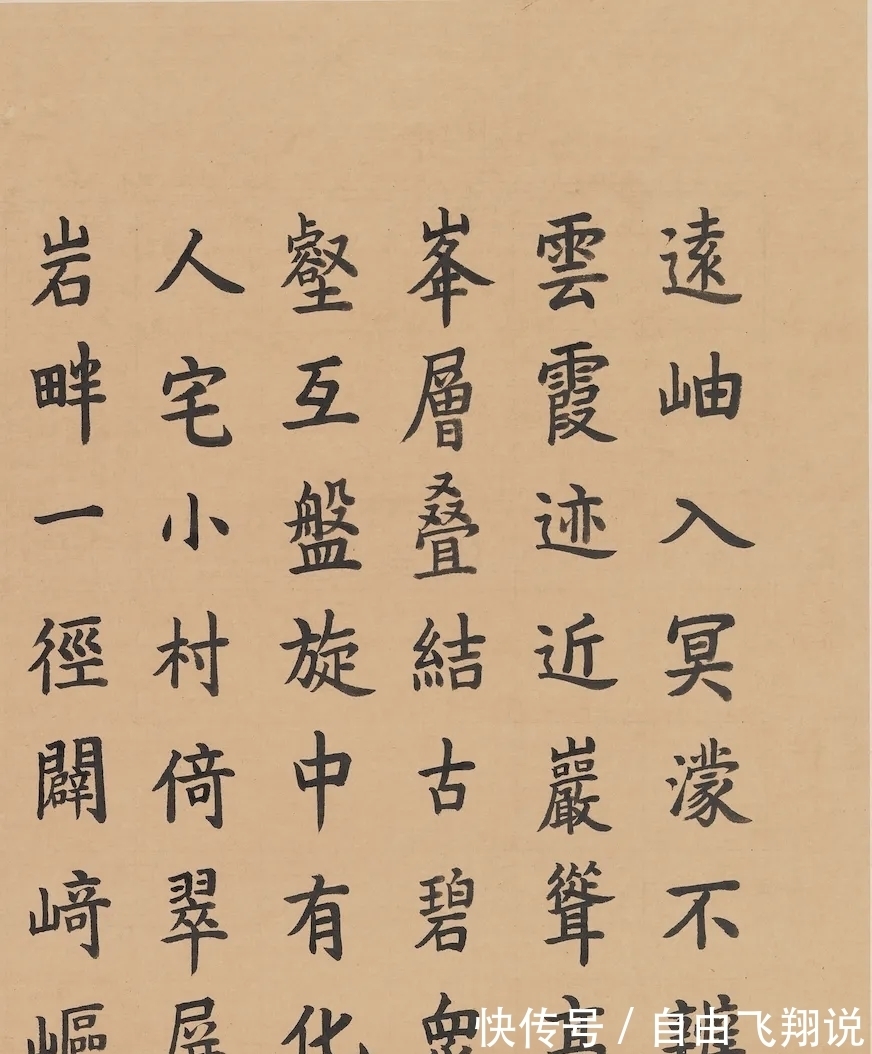 遠岫入冥濛不
雲霞迹近巖聳
峯層叠結古碧
壑互盤旋中有化
人宅小村倚翠屏
岩畔一徑闢﨑嶇
快传号 / 自由飞翔说